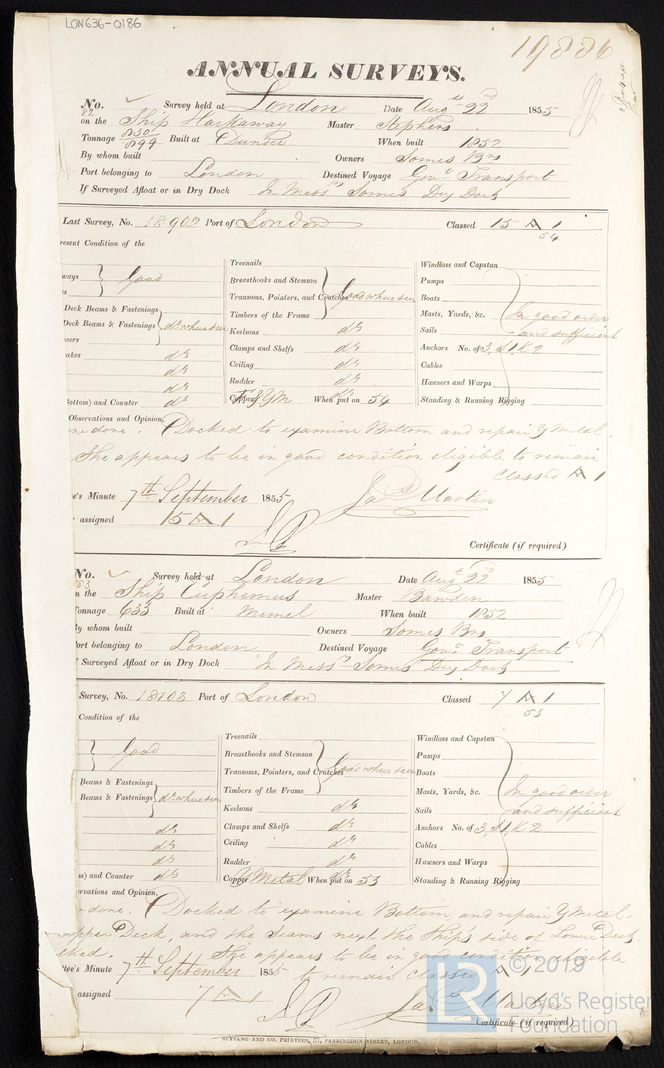 LON636-0186
19886
ANNUAL SURVEYS.
No. 82 Survey held at London Date Augst 22nd 1855
on the Ship Harkaway Master Stephens
Tonnage 830/899 Built at Dundee When built 1852
By whom built Owners Somes Brs
Port belonging to London Destined Voyage Govt Transport
If Surveyed Afloat or in Dry Dock In Messrs Somes Dry Dock
Last Survey, No. 18902 Port of London Classed 15 A 1
54
resent Condition of the
Treenails
Windlass and Capstan
ways } Good
Breasthooks and Stemson
Pumps
Transoms, Pointers, and Crutches Good where seen
Boats
Deck Beams & Fastenings
Timbers of the Frame
Masts, Yards, &c. In good order
Deck Beams & Fastenings do where seen
Keelsons do
Sails and sufficient
Clamps and Shelfs do
Anchors No. of 3, S1, K2
akes do
Ceiling do
Cables
do
Rudder do
Hawsers and Warps
do
ottom) and Counter do
Copper YM When put on 54
Standing & Running Rigging
Observations and Opinion,
ne done. Docked to examine Bottom and repair Y Metal.
She appears to be in good condition eligible to remain
Classed A 1
e's Minute 7th September 1855 Jas Martin
assigned 15 A 1
Certificate (if required)
No. Survey held at London Date Augst 22nd 1855
n the Ship Euphemus Master Bawden
onnage 633 Built at Memel When built 1852
y whom built Owners Somes Brs
ort belonging to London Destined Voyage Govt Transport
Surveyed Afloat or in Dry Dock In Messrs Somes Dry Dock
Survey, No. 18103 Port of London Classed 7 A 1
53
Condition of the
Treenails
Windlass and Capstan
} Good
Breasthooks and Stemson
Pumps
Transoms, Pointers, and Crutches Good where seen
Boats
Beams & Fastenings
Timbers of the Frame
Masts, Yards, &c. In good order
Beams & Fastenings do where seen
Keelsons do
Sails and sufficient
do
Clamps and Shelfs do
Anchors No. of 3, S1, K2
do
Ceiling do
Cables
do
Rudder do
Hawsers and Warps
m) and Counter do
Copper Y Metal When put on 53
Standing & Running Rigging
rvations and Opinion,
done. Docked to examine Bottom and repair Y Metal.
upper Deck, and the Seams next the Ship's side of Lower Deck
ked. She appears to be in good condition eligible
ttee's Minute 7th September 1855 to remain Classed A 1
assigned 7 A 1 Jas Martin
Certificate (if required)
SEYFANG AND CO. PRINTERS, 57, FARRINGDON STREET, LONDON.
LR © 2019
Lloyd's Register
Foundation